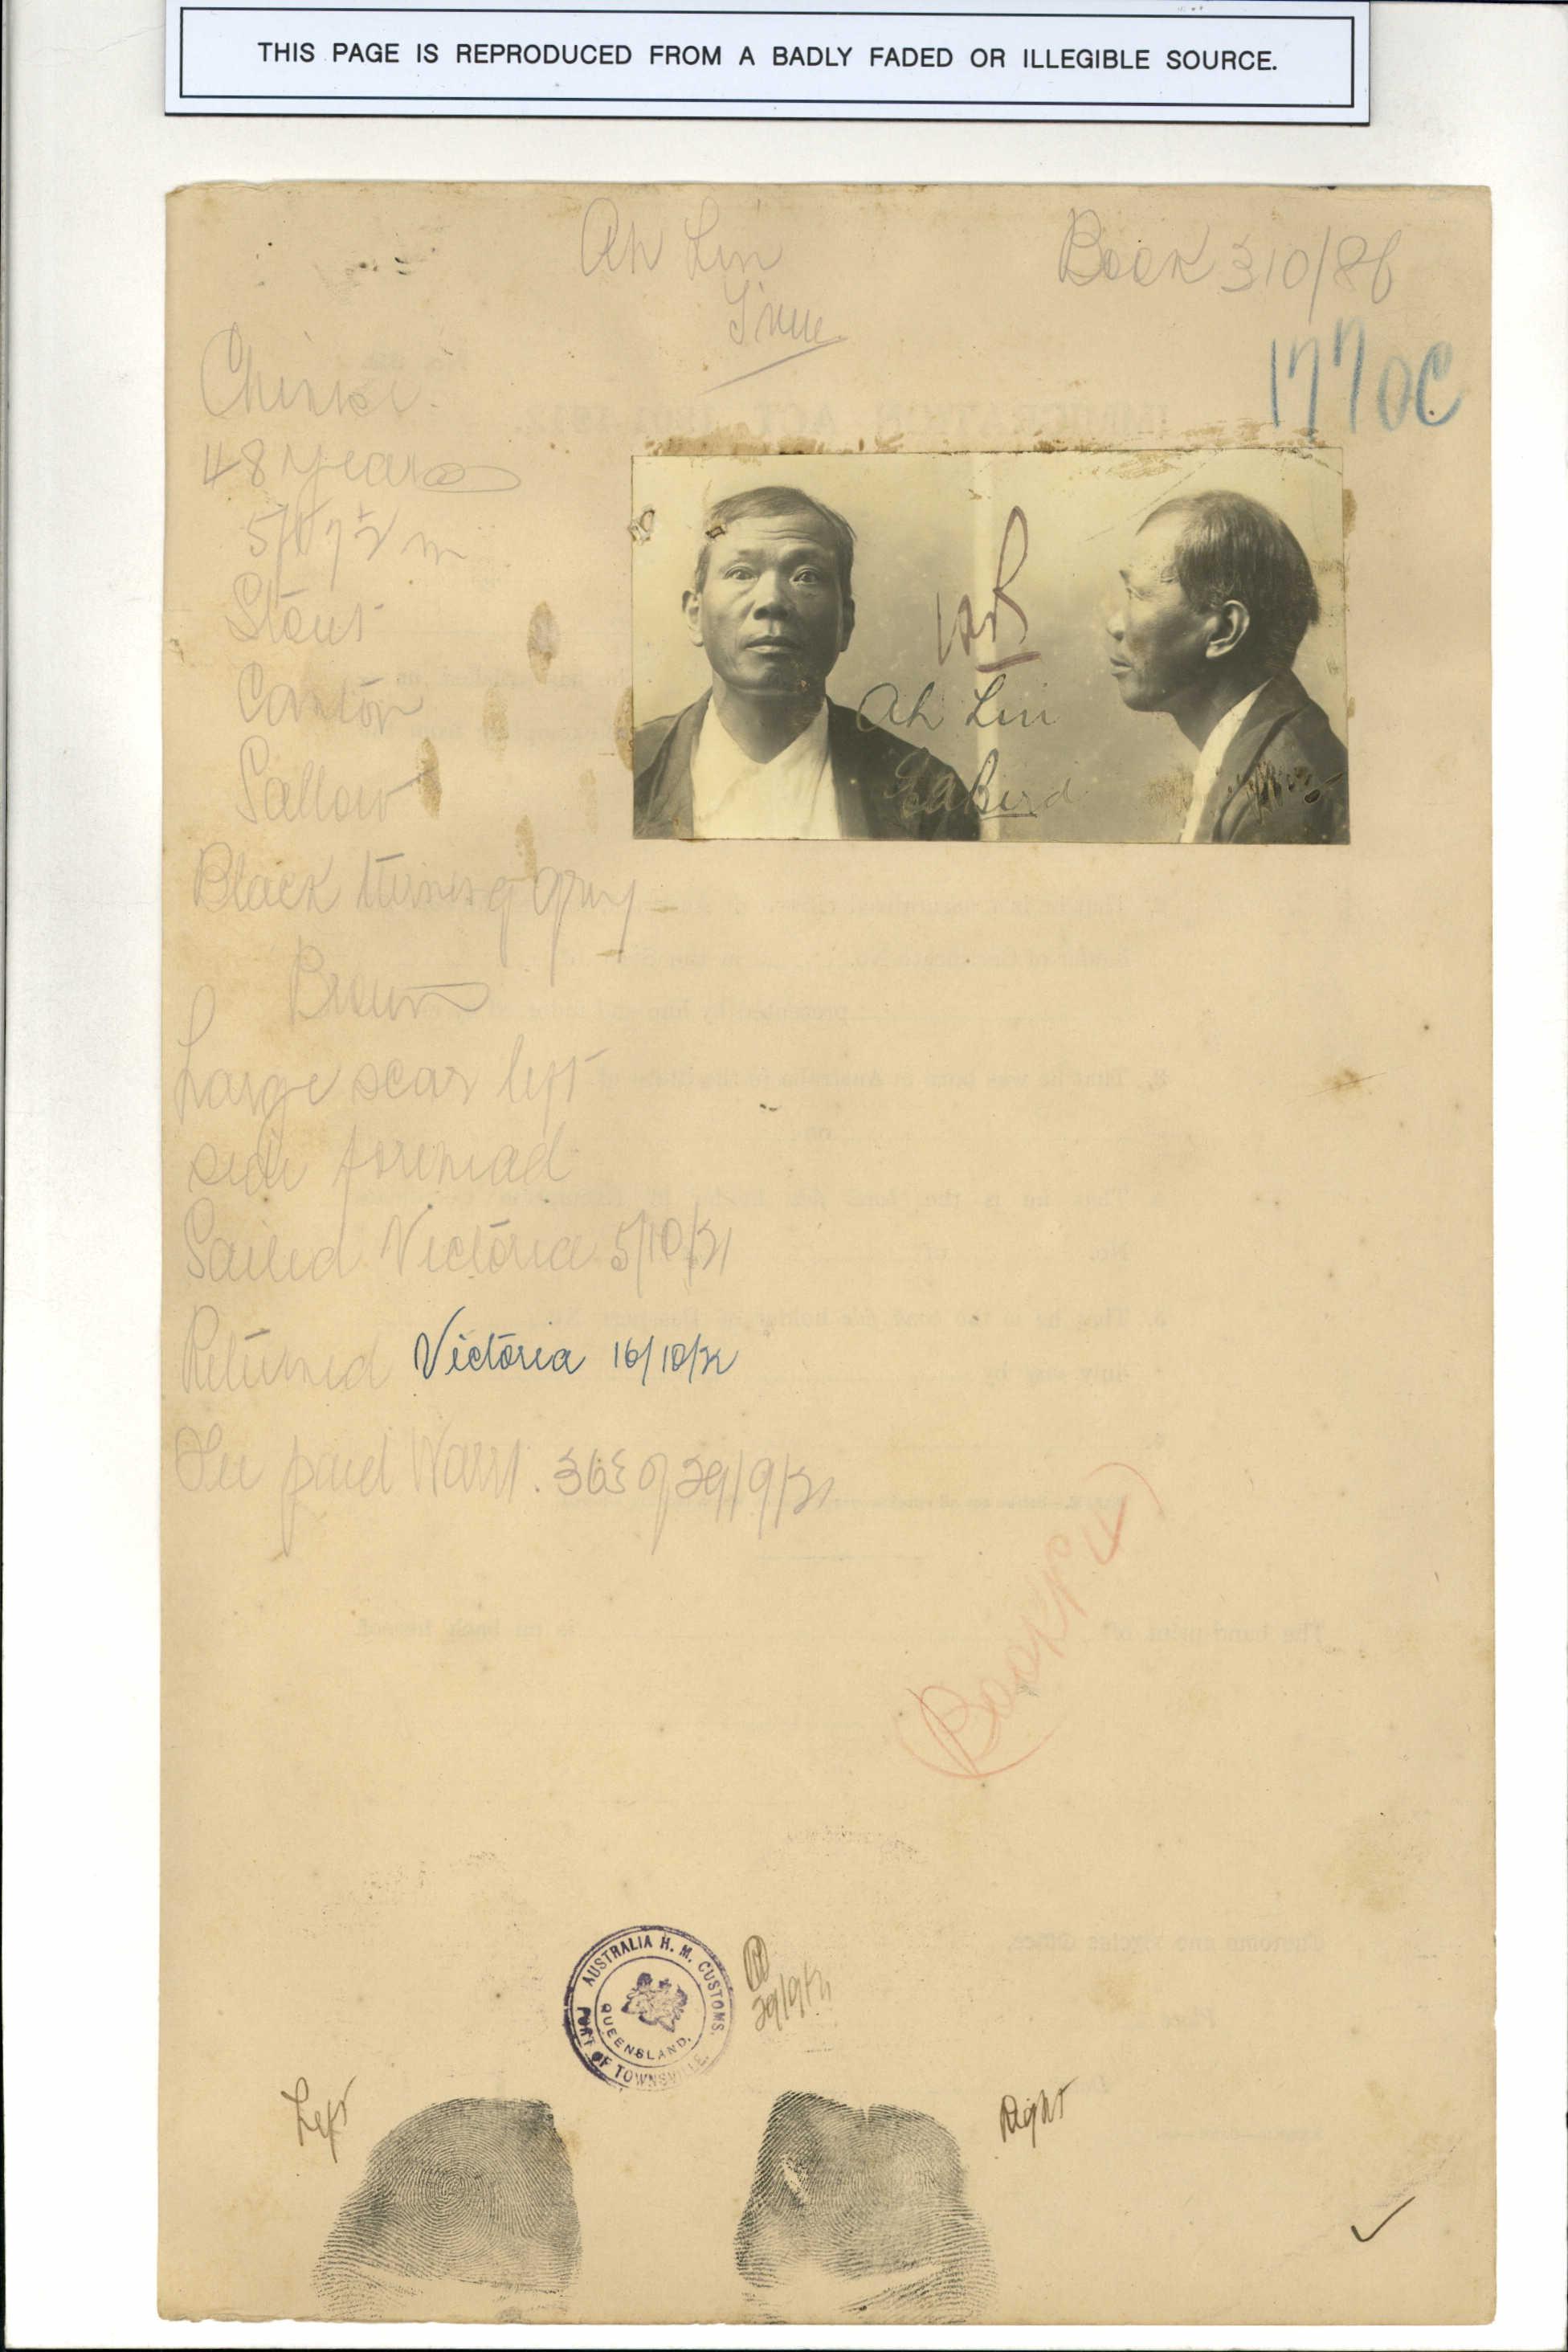 THIS PAGE IS REPRODUCED FROM A BADLY FADED OR ILLEGIBLE SOURCE.
Ah Lin
Book 310/86
1770C
48 years
Stout
Canton
Sallow
Ah Lin
GABird
Black turning grey
Brown
Large scar left
side forehead
Sailed Victoria 5/10/21
Returned Victoria 16/10/22
paid Warrt. 363 of 29/9/21
(Book P. 4)
AUSTRALIA H. M. CUSTOMS.
QUEENSLAND.
PORT OF TOWNSVILLE.
29/9/21
Left
Right